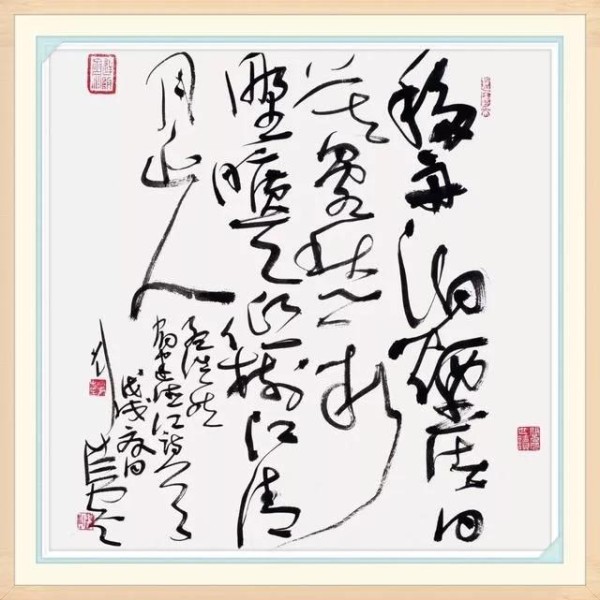 移舟泊煙渚日
暮客愁新
野曠天低樹江清
月近人
孟浩然
宿建德江詩一首
戊戌